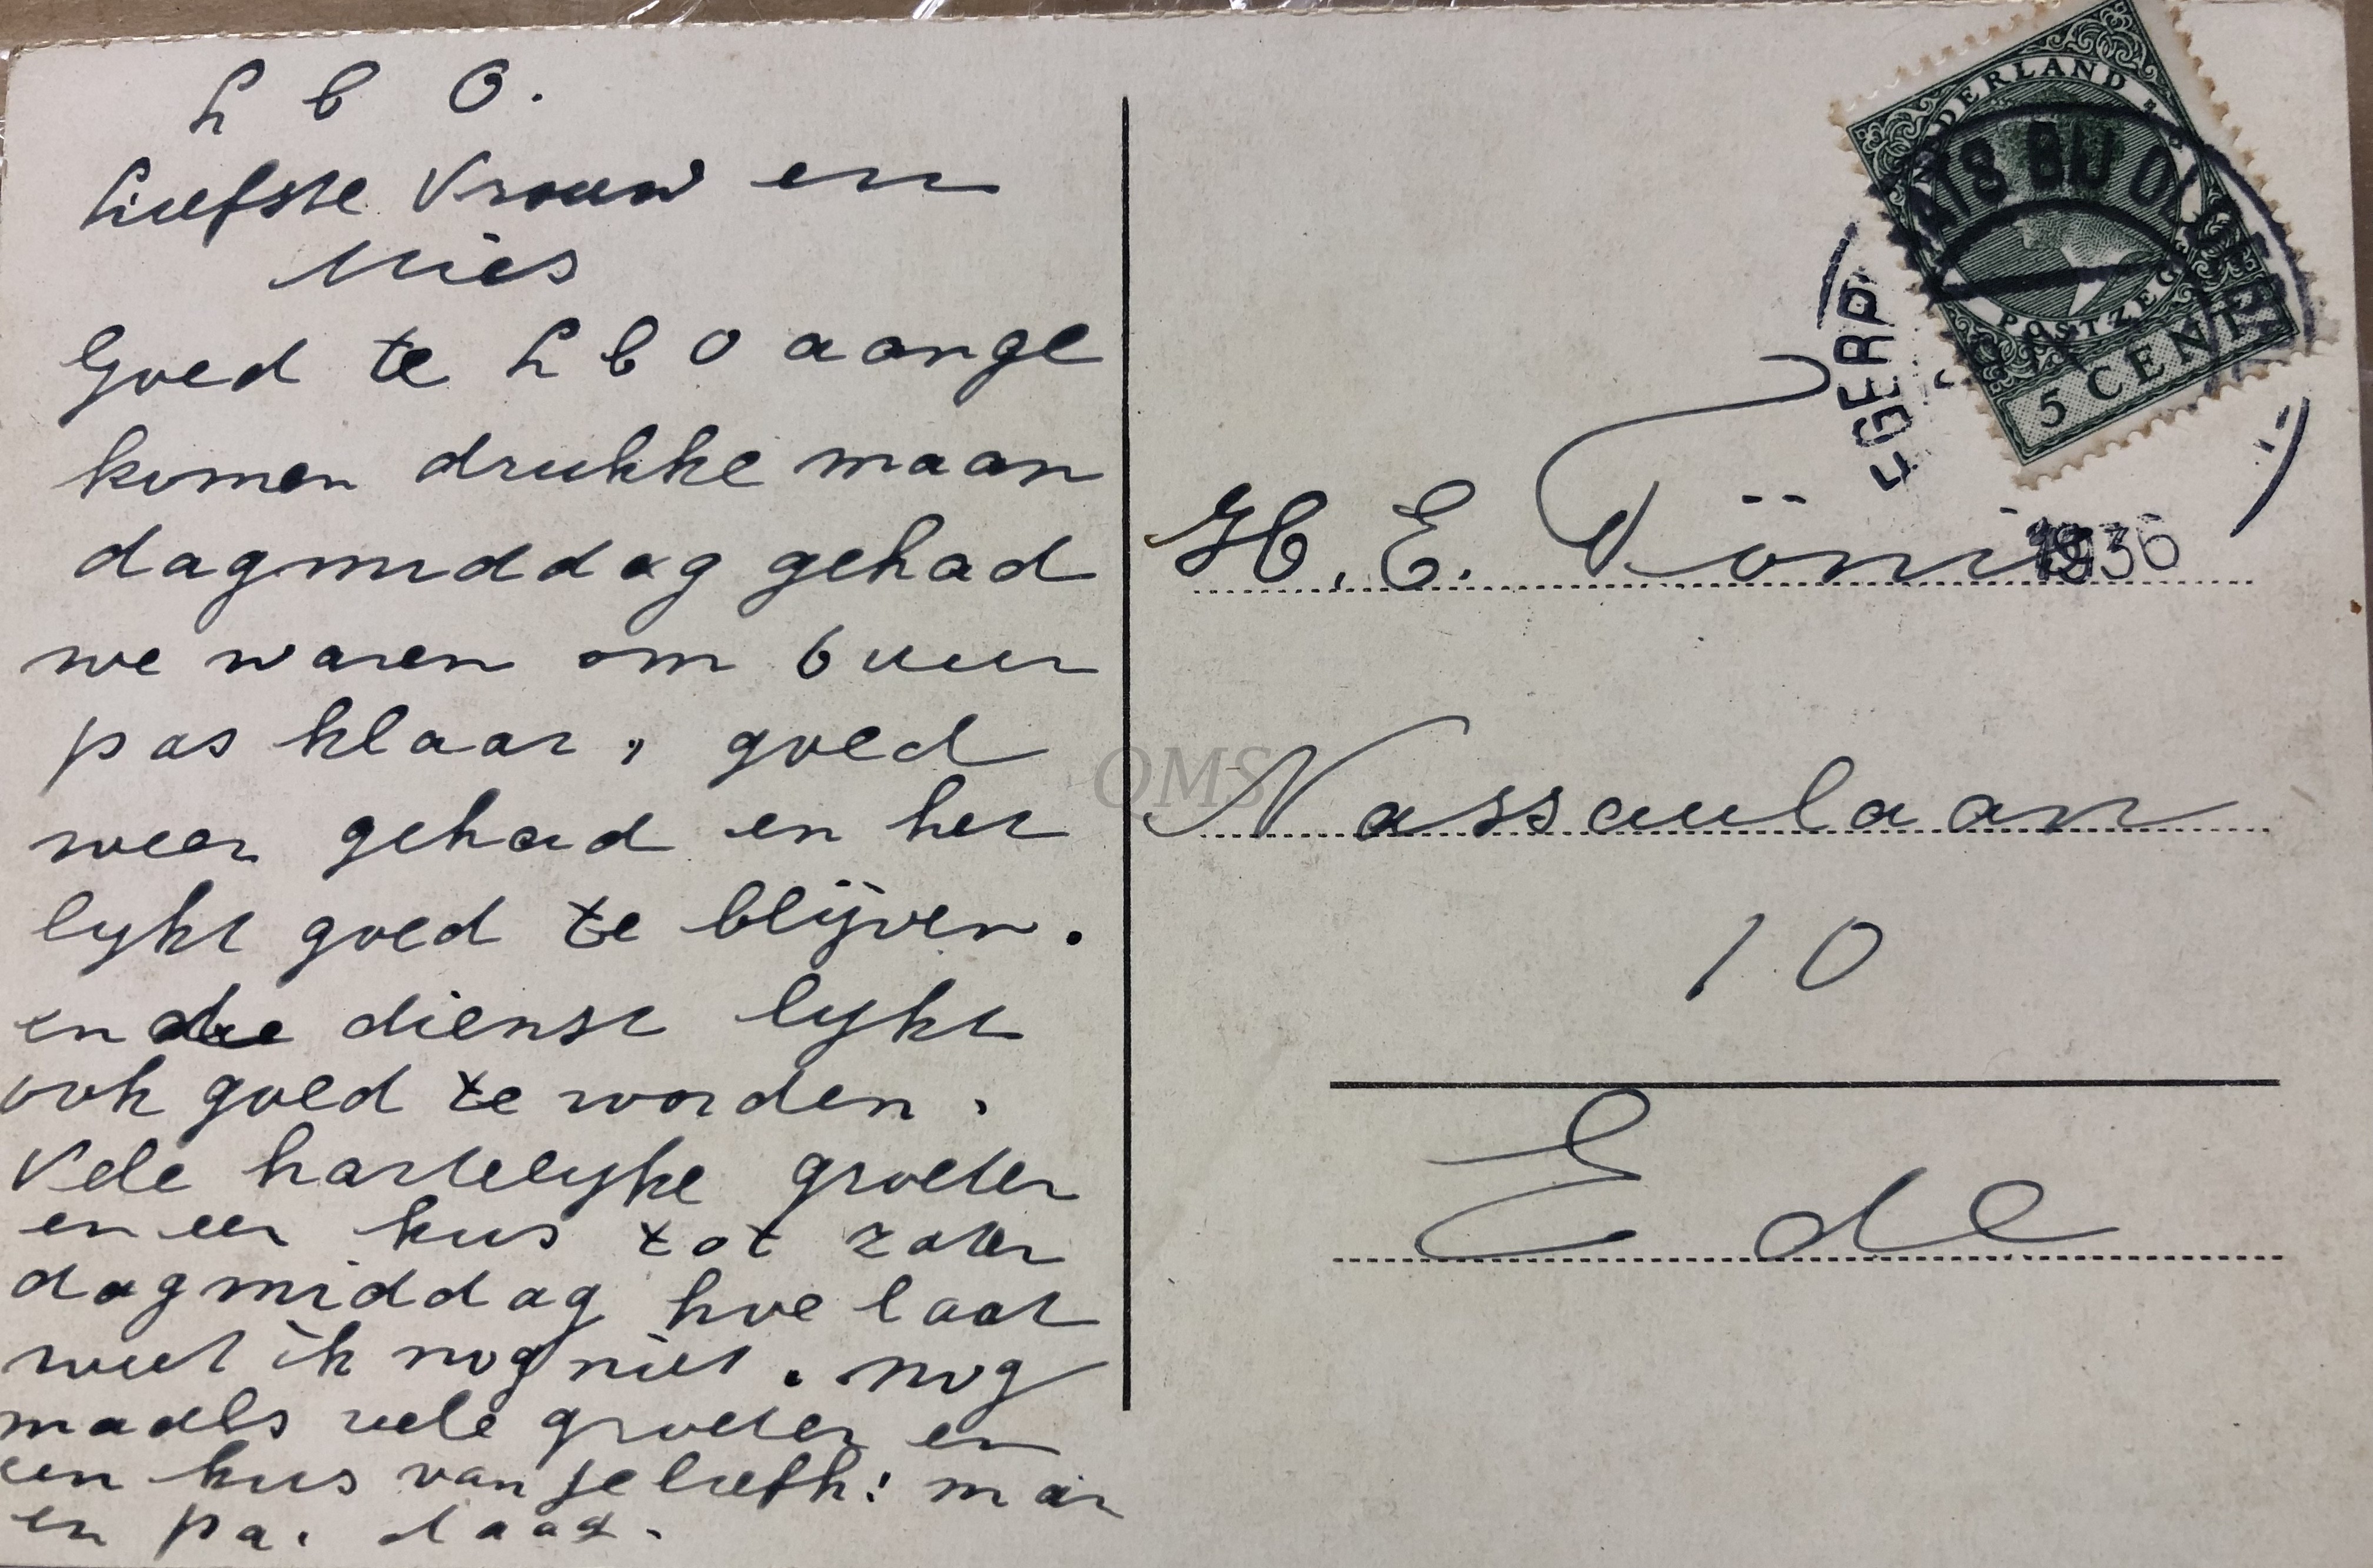 L b O.
Liefste Vrouw en
Mies
Goed te L b O aange
komen drukke maan
dagmiddag gehad
we waren om 6 uur
pas klaar, goed
weer gehad en het
lykt goed te blijven.
en de dienst lykt
ook goed te worden.
Vele hartelyke groeten
en een kus tot zater
dagmiddag hoe laat
weet ik nog niet. nog
maals vele groeten en
een kus van je liefh: man
en pa. daag.
NEDERLAND
POSTZEGEL
5 CENT
ATS BIJ OLST
1936
H. E. Tönis
Nassaulaan
10
Ede
QMS